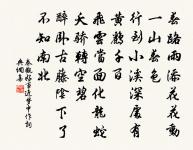 春路雨添花花動
一山春色
行到小溪深處有
黃鸝千百
飛雲當面化龍蛇
夭矯轉空碧
醉臥古藤陰下了
不知南北
秦觀好事近夢中作詞